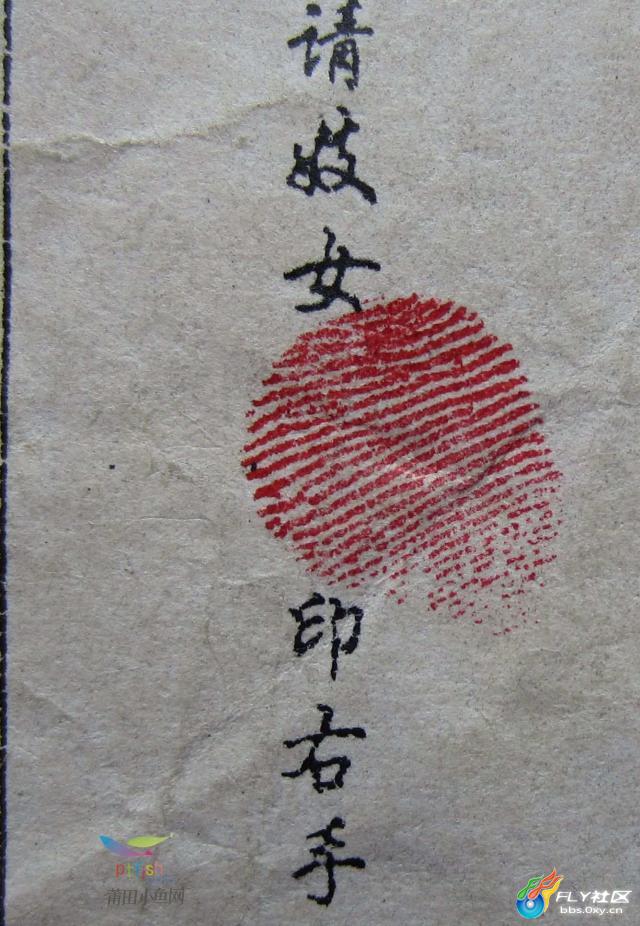 请妓女
印右手
ptfish
莆田小鱼网
FLY社区
bbs.0xy.cn